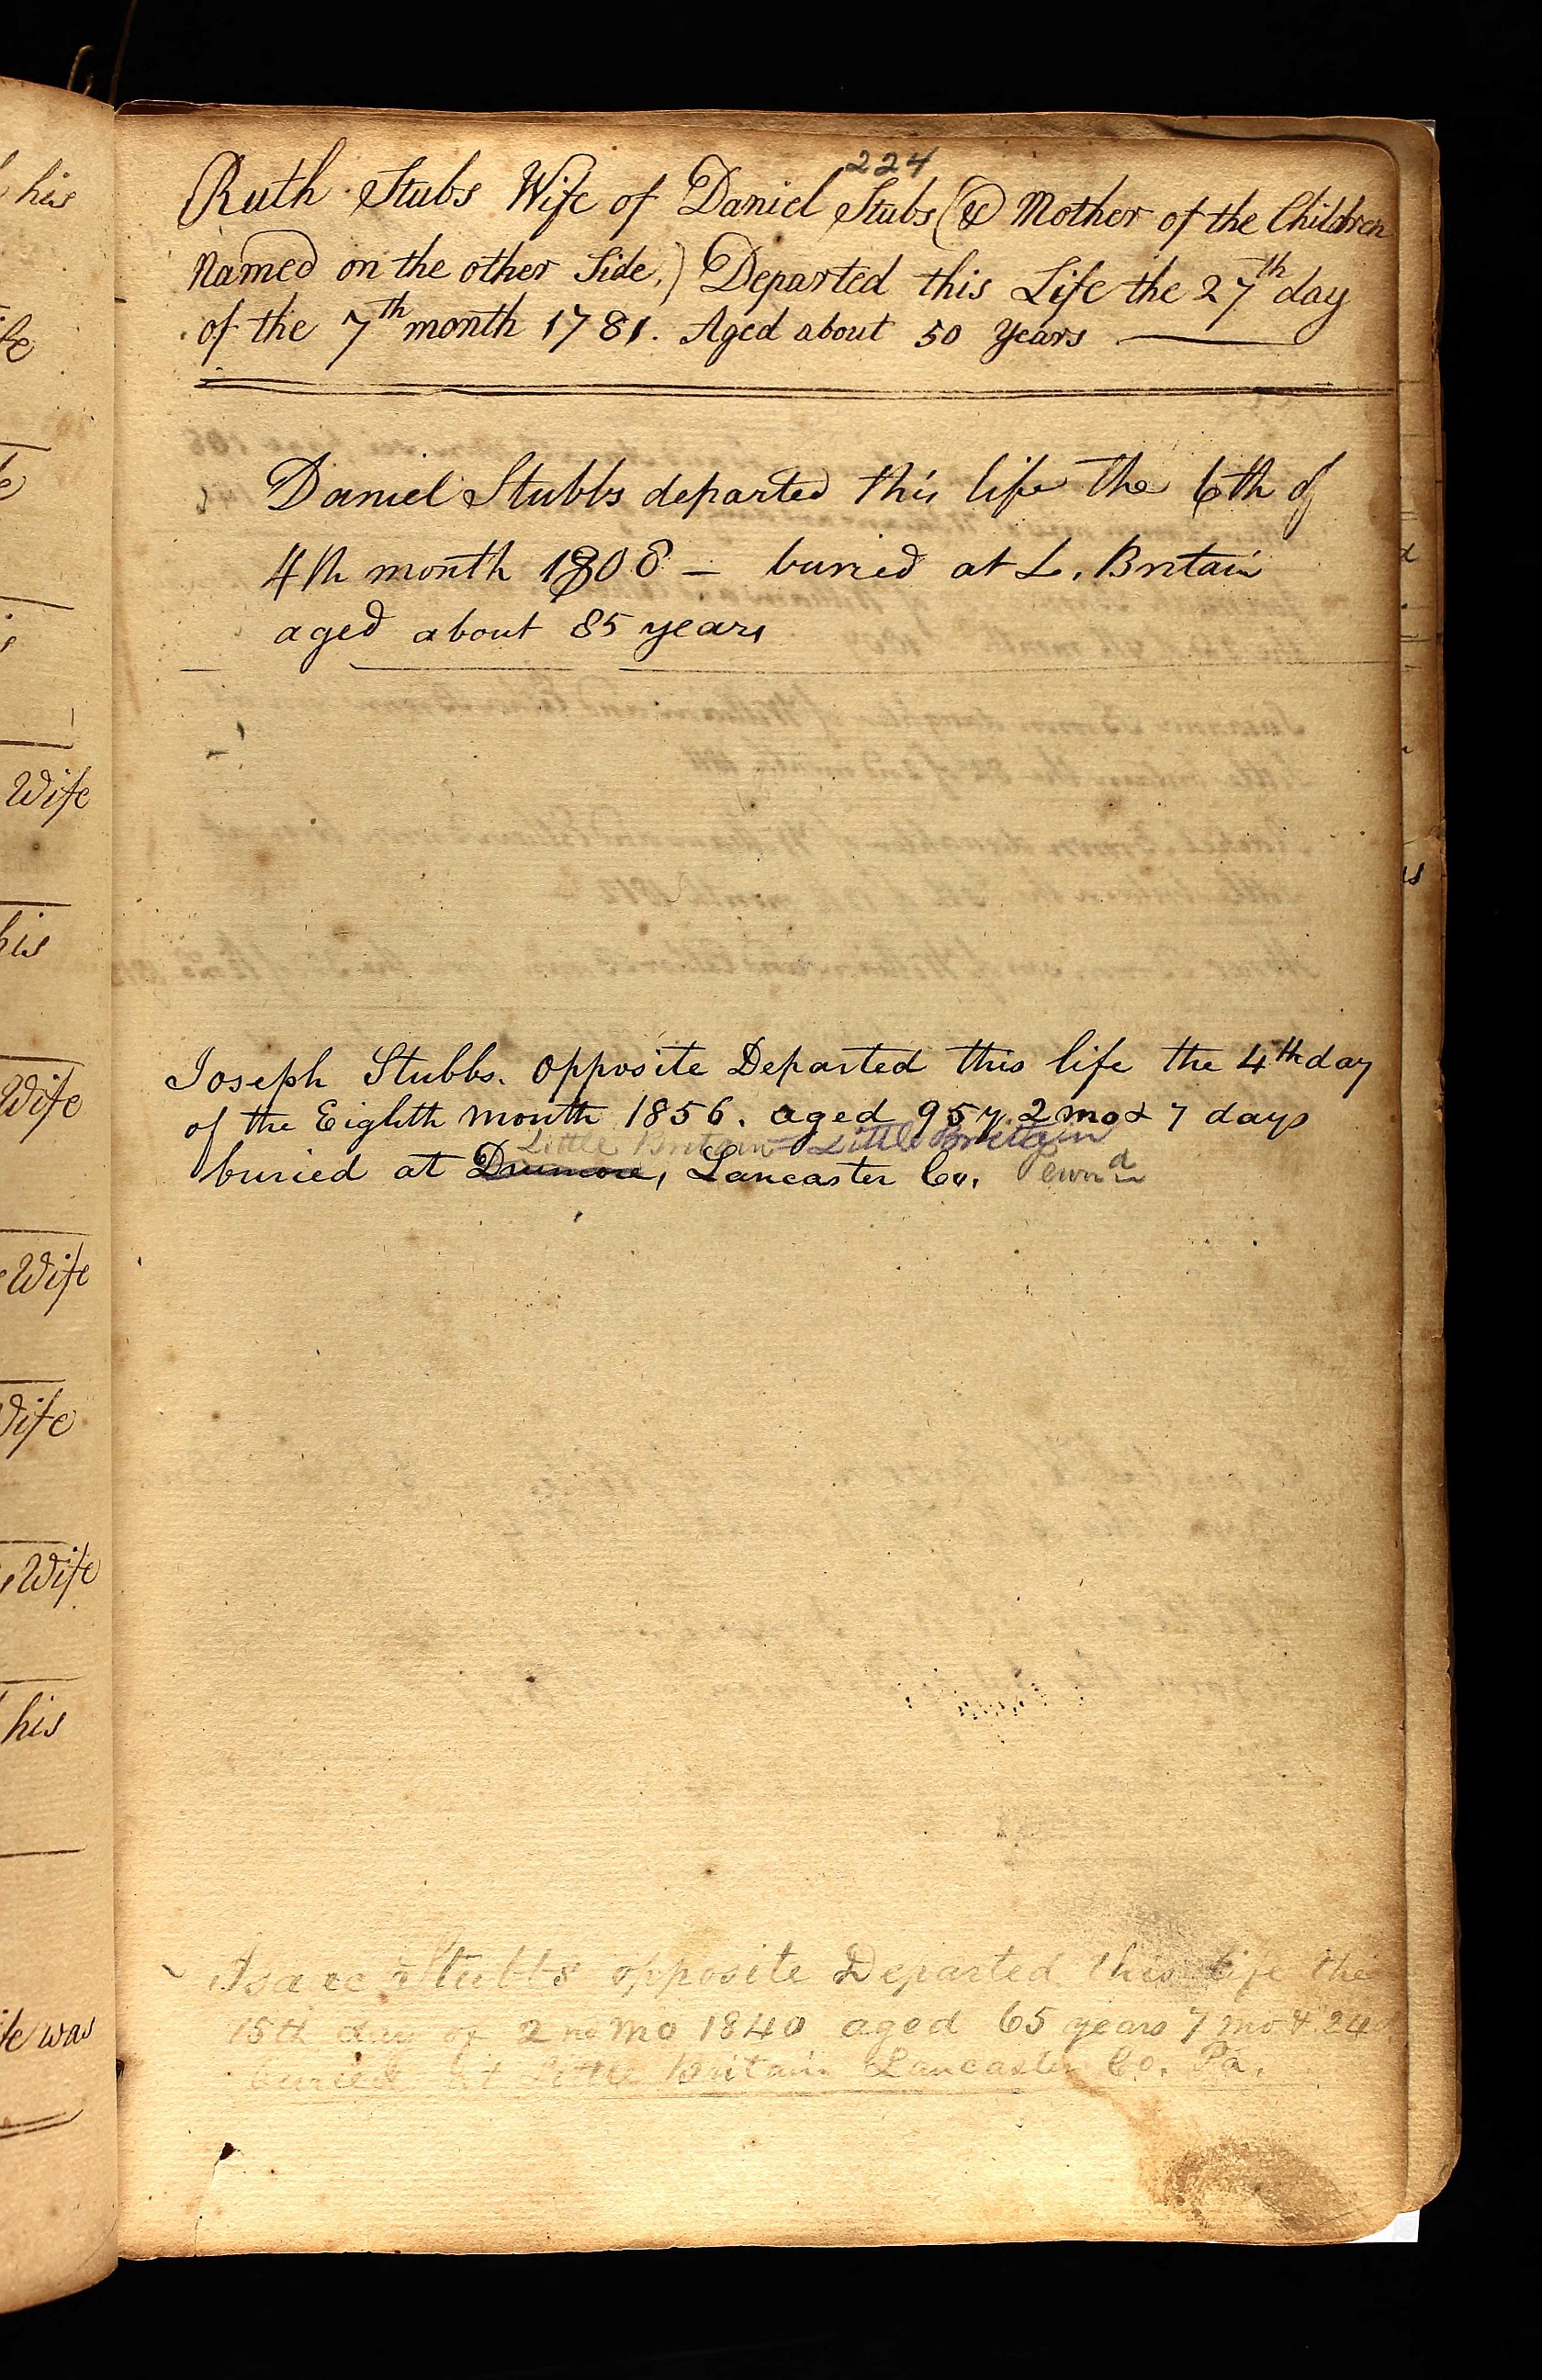 224
Ruth Stubs Wife of Daniel Stubs (& Mother of the Children
Named on the other Side.) Departed this Life the 27th day
of the 7th month 1781. Aged about 50 Years
Daniel Stubbs departed this life the 6th of
4th month 1808 — buried at L. Britain
aged about 85 years
Joseph Stubbs. Opposite Departed this life the 4th day
of the Eighth month 1856. aged 95 y. 2 mo & 7 days
Little Britain Little Britain
buried at Drumore, Lancaster Co.
Isaac Stubbs opposite Departed this life the
15th day of 2nd mo 1840 aged 65 years 7 mo & 24 d
buried at little Britain Lancaster Co. Pa.
his
Wife
his
Wife
Wife
Wife
Wife
his
was